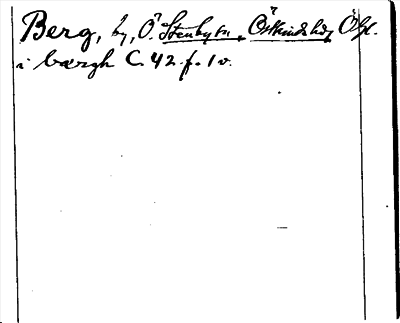 Berg, by, Ö. Stenby sn, Östkinds hd, Ögl.
i bærgh C. 42. f. 1 v.